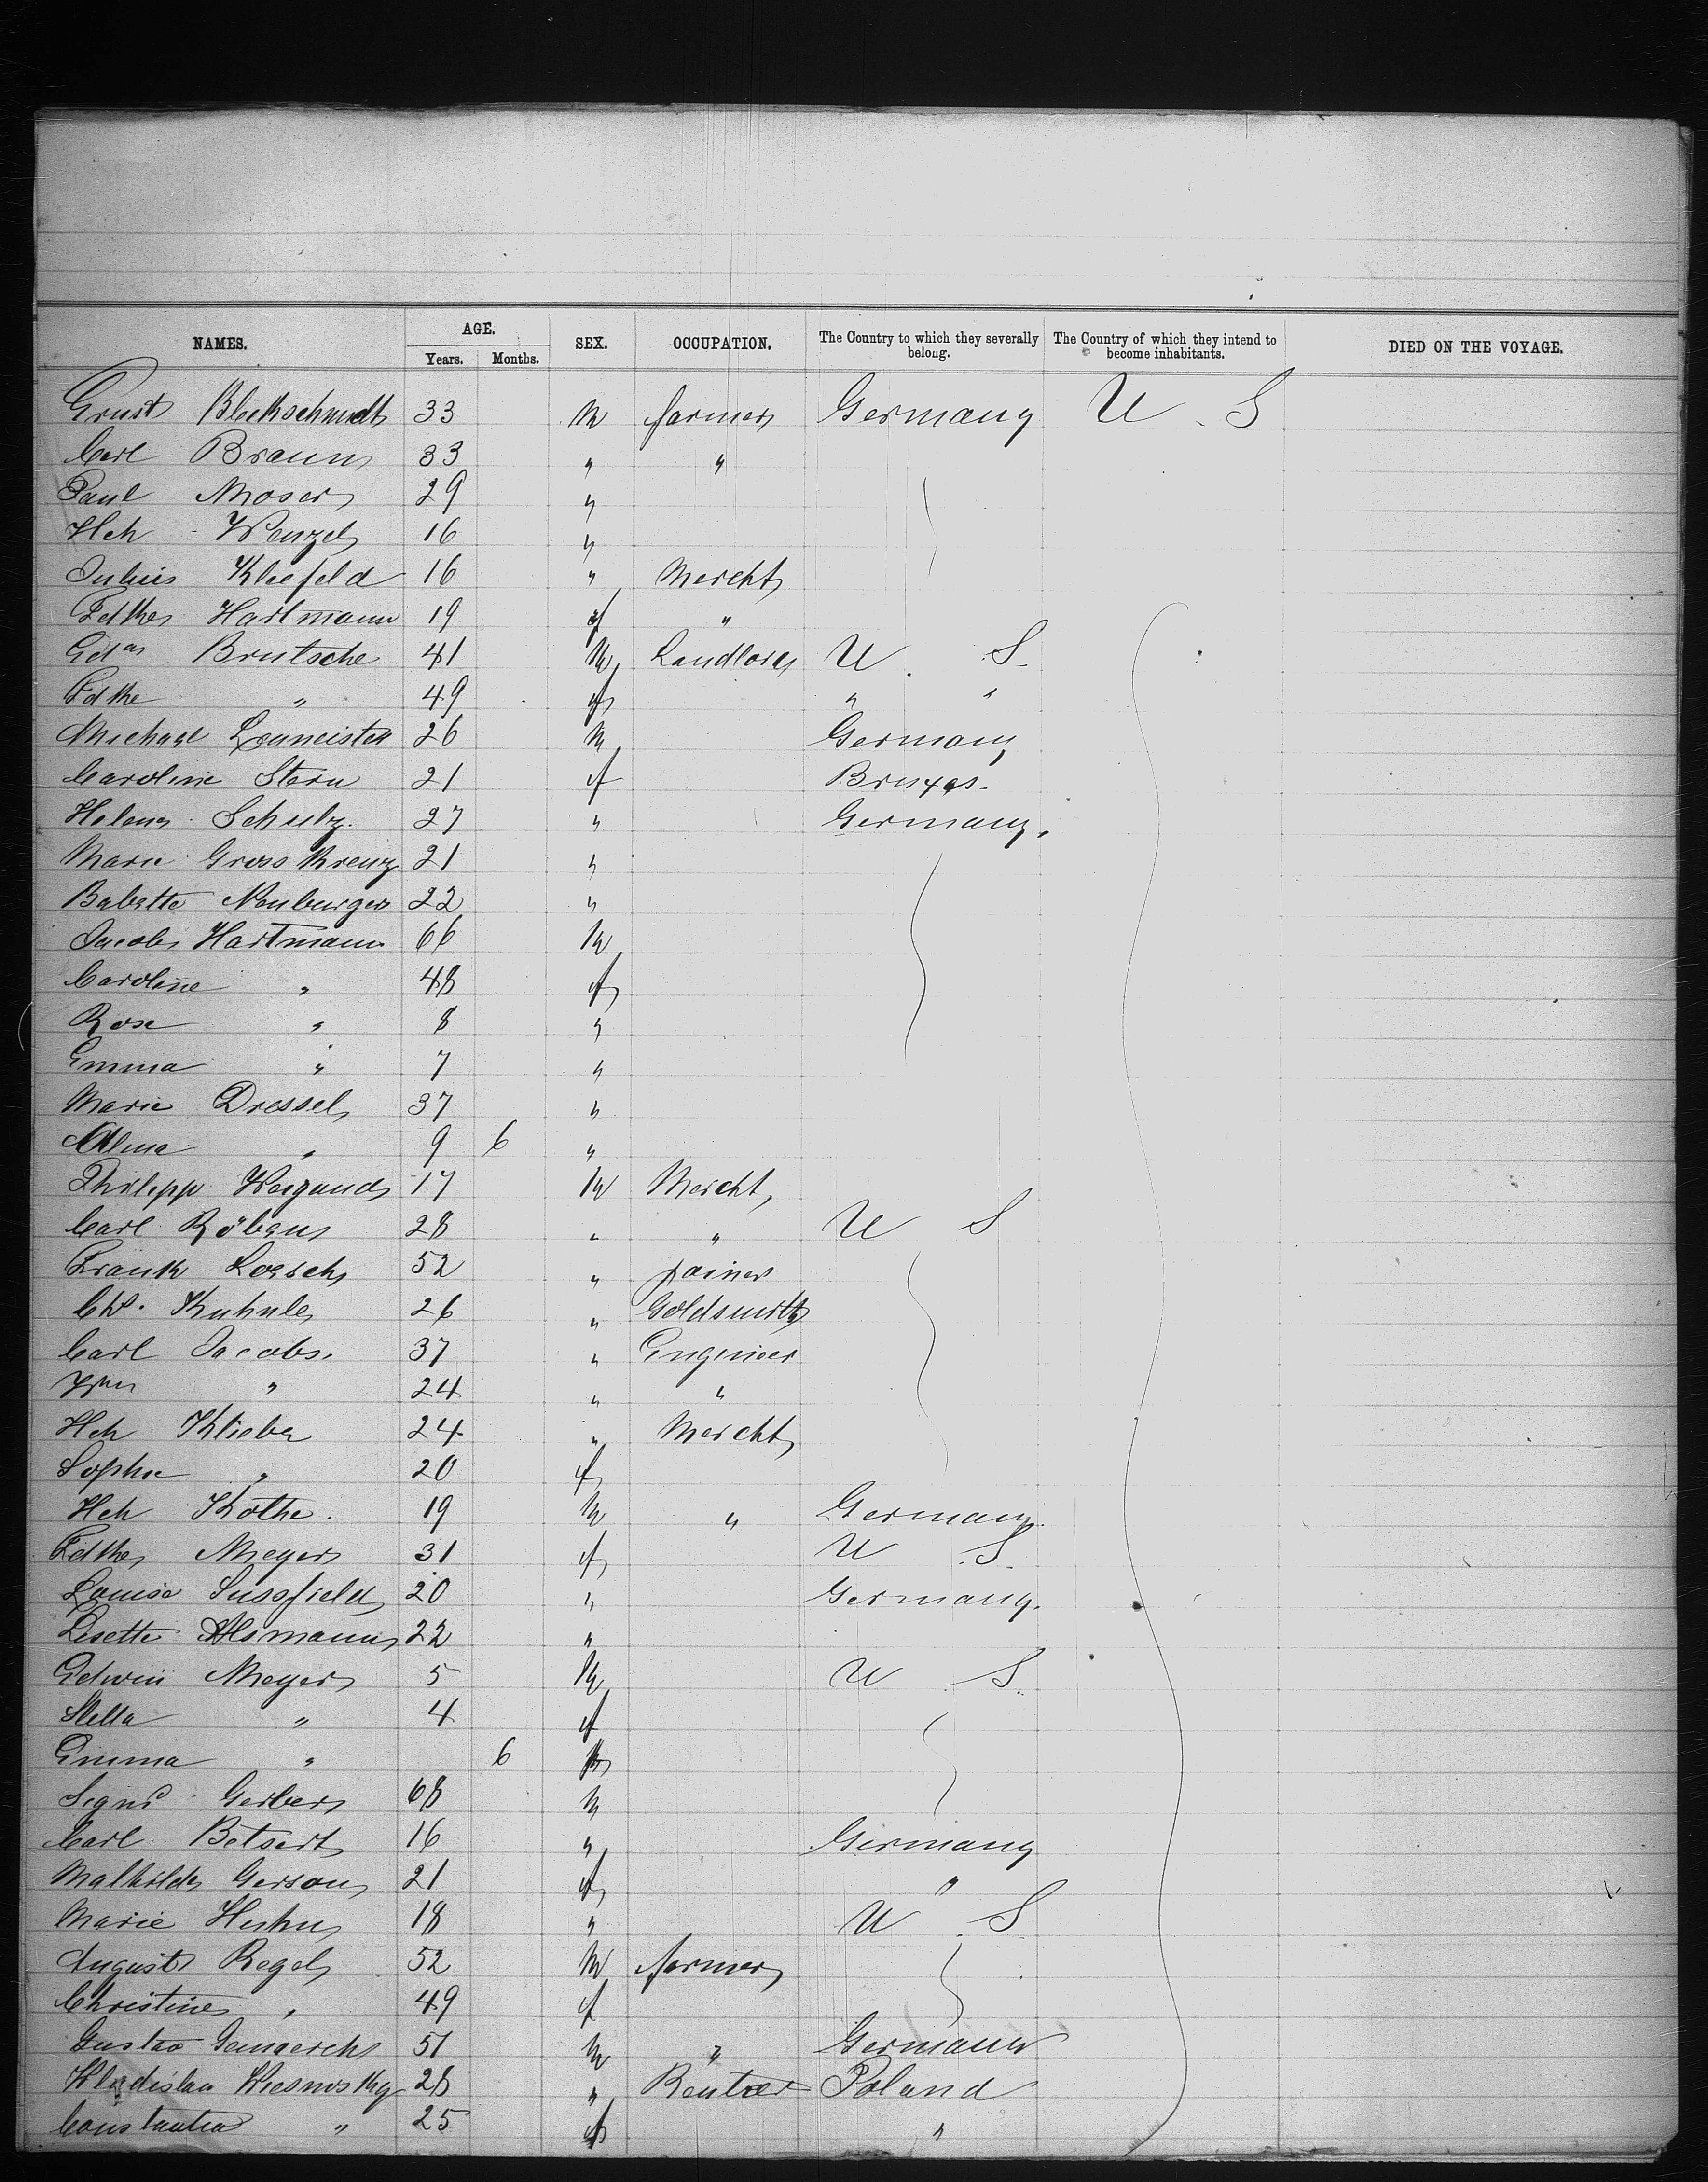 NAMES. AGE. Years. Months. SEX. OCCUPATION. The Country to which they severally belong. The Country of which they intend to become inhabitants. DIED ON THE VOYAGE.
Ernst Bleckschmidt 33 M farmer Germany U. S
Carl Braun 33 " "
Paul Moser 29 "
Hch Wenzel 16 "
Julius Kleefeld 16 " Mercht
Fdke Hartmann 19 f "
Edas Brutsche 41 M Landlord U. S.
Fdke " 49 f " "
Michael 26 M Germany
Caroline Stern 21 f
Helena Schulz. 27 " Germany.
Marie Grosskreuz 21 "
Babette Neuburger 22 "
Jacob Hartmann 66 M
Caroline " 48 f
Rose " 8 "
Emma " 7 "
Marie Dressel 37 "
Alma " 9 6 "
Philipp Weigand 17 M Mercht
Carl Röbens 28 " " U S
Frank Loesch 52 " joiner
Chr. Kuhnle 26 " Goldsmith
Carl Jacobs. 37 " Engineer
Wm " 24 " "
Hch Kliebe 24 " Mercht
Sophie " 20 f
Hch Kothe. 19 M " Germany.
Fdke Meyer 31 f U. S.
Louise Sussfield 20 " Germany.
Lisette Alsmann 22 "
Edwin Meyer 5 M U. S.
Stella " 4 f
Emma " 6
Sigmd Gerber 68 M
Carl Betsert 16 " Germany
Mathilde Gerson 21 f "
Marie Huhn 18 " U. S
August Regel 52 M farmer
Christine " 49 f
Gustav 51 M " Germany
Wladislau Wiesnosky 28 " Rentier Poland
Constantia " 25 f "